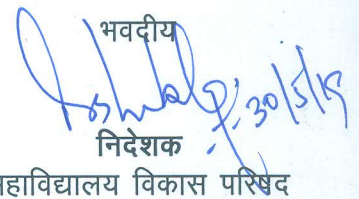 भवदीय
30/5/19
निदेशक
महाविद्यालय विकास परिषद